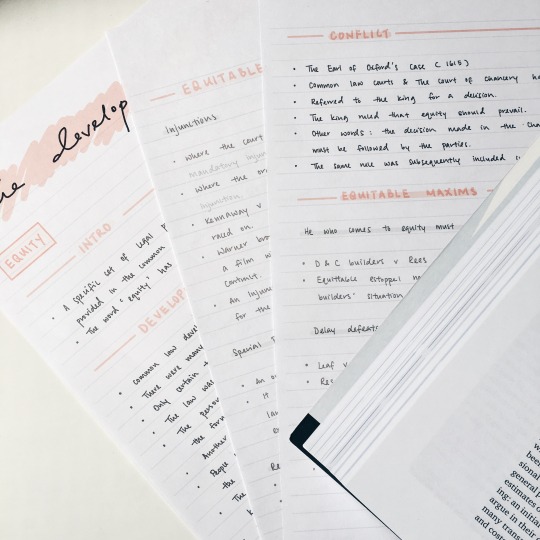 he develop
EQUITY
INTRO
• A specific set of legal p
provided in the common
• The word 'equity' has
DEVELOP
• Common law devel
• There were many
• Only certain
• The law was
• The person
the form
• Another
• People
the
• The
EQUITABLE
Injunctions
• Where the court
mandatory injun
• Where the or
injunction.
• Kennaway v
raced on.
• Warner bro
a film w
contract.
• An injun
for the
Special P
• An o
• It
CONFLICT
• The Earl of Oxford's Case (1615)
• Common law courts & the court of Chancery ha
• Referred to the king for a decision.
• The king ruled that equity should prevail.
• Other words: the decision made in the Chan
must be followed by the parties.
• The same rule was subsequently included
EQUITABLE MAXIMS
He who comes to equity must
• D & C builders v Rees
• Equitable estoppel no
builders' situation
Delay defeats
• Leaf v
• Re
w
been
sional
general p
estimates o
ing: an initia
argue in their
many transa
and cost